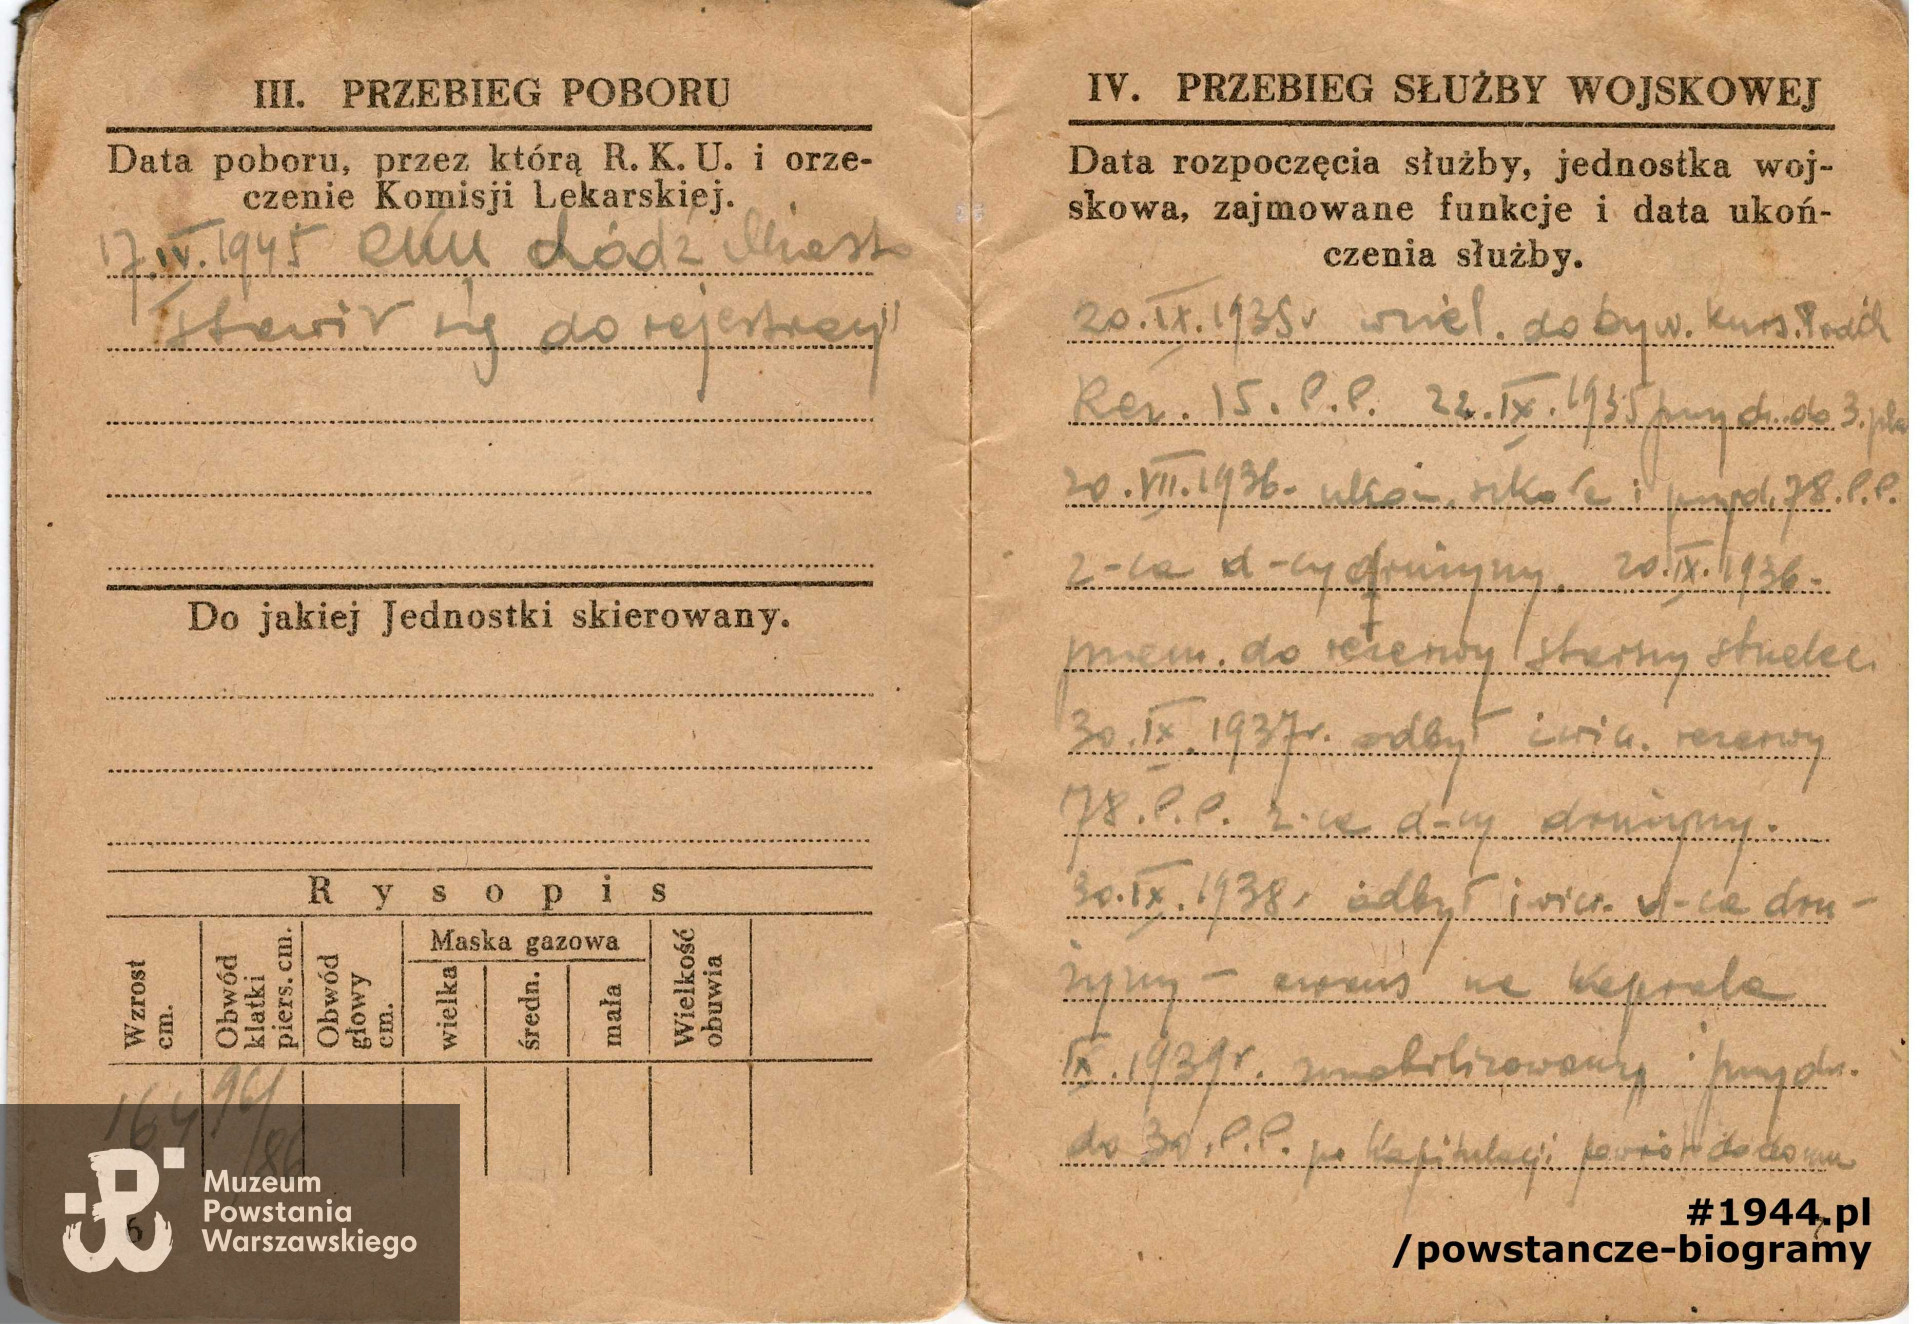 III. PRZEBIEG POBORU
Data poboru, przez którą R. K. U. i orze-
czenie Komisji Lekarskiej.
17.IV.1945 RKU Łódź Miasto
stawił się do rejestracji
Do jakiej Jednostki skierowany.
Rysopis
Wzrost cm.
Obwód klatki piers. cm.
Obwód głowy cm.
Maska gazowa
wielka
średn.
mała
Wielkość obuwia
164
94/86
6
IV. PRZEBIEG SŁUŻBY WOJSKOWEJ
Data rozpoczęcia służby, jednostka woj-
skowa, zajmowane funkcje i data ukoń-
czenia służby.
20.IX.1935r wciel. do byw. kurs. Podch
Rez. 15.P.P. 22.IX.1935 przydz. do 3.
20.VII.1936. ukoń. szkołę i przyd. 78.P.P.
z-ca d-cy drużyny. 20.IX.1936.
przen. do rezerwy starszy strzelec.
30.IX.1937r. odbył ćwicz. rezerwy
78.P.P. z-ca d-cy drużyny.
30.IX.1938r odbył ćwicz. d-ca dru-
żyny - awans na kaprala
IX.1939r. zmobilizowany i przydz.
do 30.P.P. po kapitulacji powrót do domu
Muzeum
Powstania
Warszawskiego
#1944.pl
/powstancze-biogramy